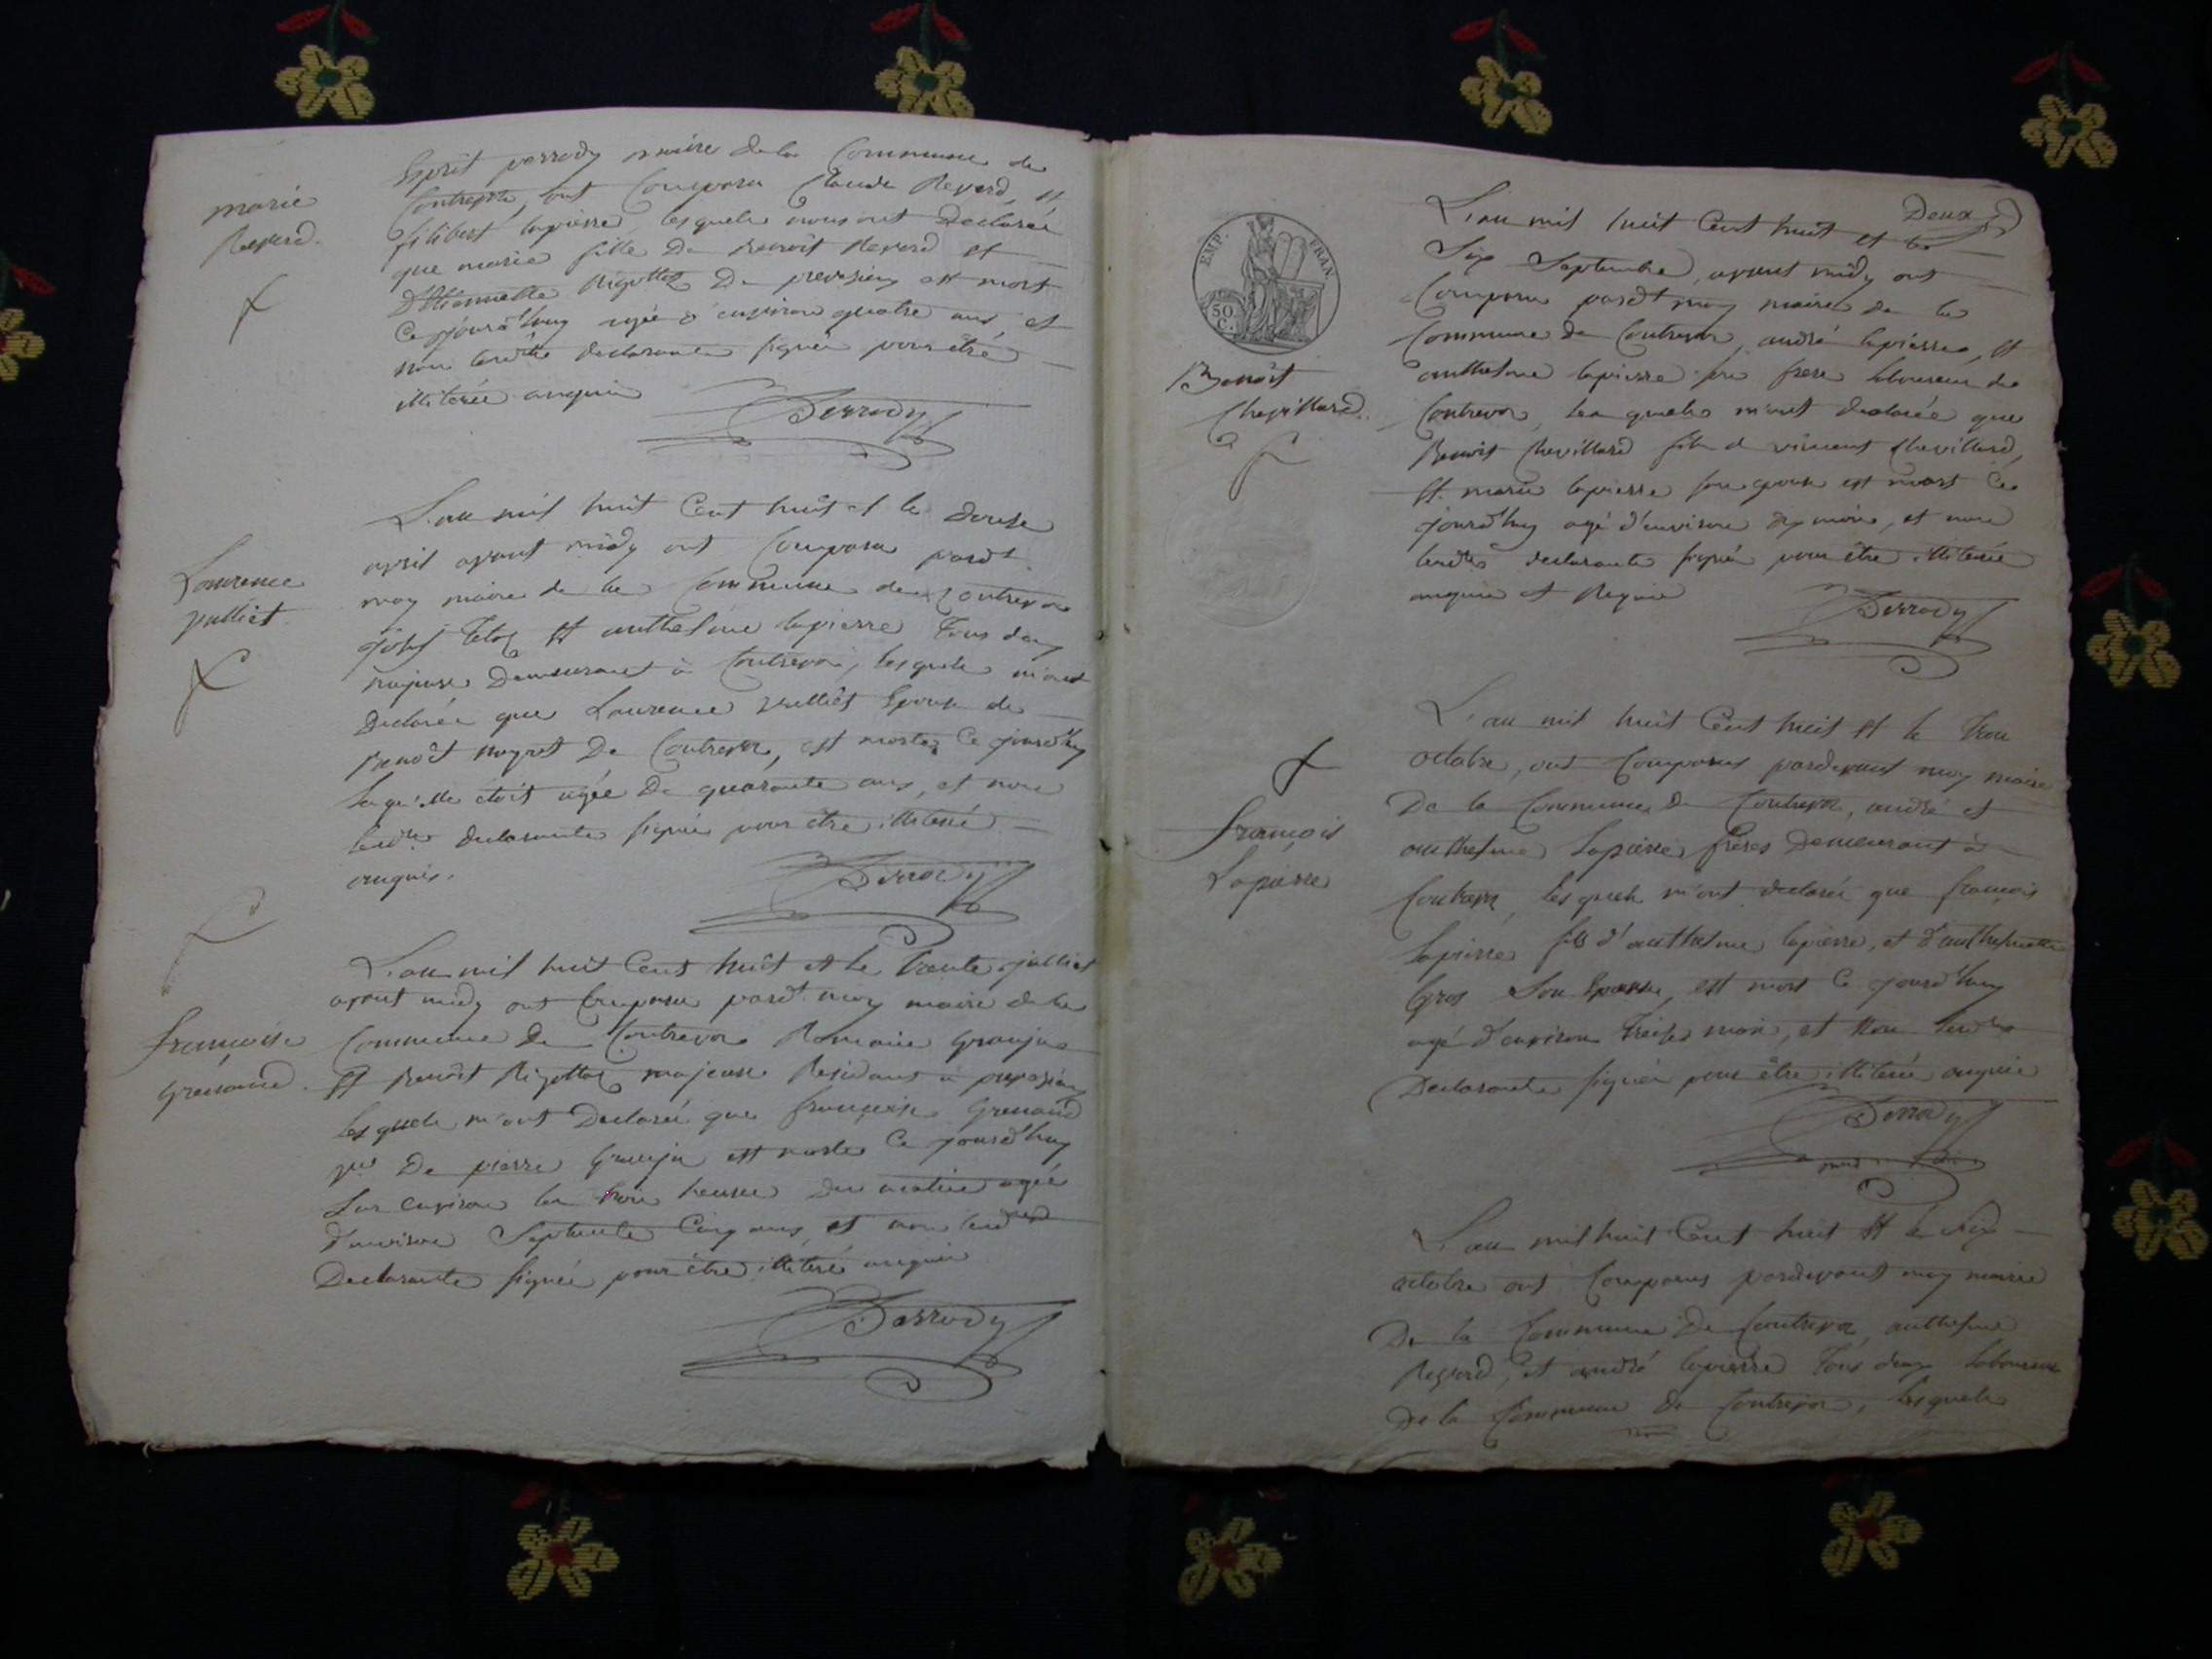 Esprit perrody maire de la Commune de
Contrevoz, ont Comparu Claude Reverd, et
filibert lapierre lesquels nous ont Declarée
que marie fille De benoit Reverd et
D'Etiennette Rigottet De preveysieu est mort
Ce jourd'huy agée d'environ quatre ans, et
non lesdits declarants signée pour être
illiterée enquis
Perrody
marie
Reverd.
L'an mil huit Cent huit et le douse
avril avant midy ont Comparu pardt
moy maire de la Commune de Contrevoz
josef Tetoz et anthelme lapierre Tous deux
majeurs Demeurant à Contrevoz, lesquels m'ont
Declarée que Laurence Julliet Epouse de
benoît De Contrevoz, est morte Ce jourd'huy
laquelle étoit agée De quarante ans, et non
lesdts declarants signée pour être illiteré
enquis.
Perrody
Laurence
julliet
L'an mil huit Cent huit et le Trente juilliet
avant midy ont Comparu pardt moy maire de la
Commune De Contrevoz Romain Granju
et benoît Rigottet majeurs Residant à preveysieu
lesquels m'ont Declarée que françoise Grenand
De pierre Granju est morte Ce jourd'huy
Sur environ les trois heures du matin agée
d'environ Septente Cinq ans, et non lesdts
Declarants signée pour être illiteré enquis
Perrody
françoise
grenand.
Deux
L'an mil huit Cent huit et le
Six Septembre, avant midy ont
Comparu pardt moy maire de la
Commune De Contrevoz, andré lapierre, et
anthelme lapierre son frere laboureur de
Contrevoz, lesquels m'ont declarée que
Benoit Chevillard fils de vincent Chevillard,
et marie lapierre son epouse est mort Ce
jourd'huy agé d'environ dix mois, et non
lesdts declarants signée pour être illiterée
enquis et Requis
Perrody
EMP. FRAN.
50 C.
Benoît
Chevillard.
L'an mil huit Cent huit et le Trois
octobre, ont Comparus pardevant moy maire
De la Commune De Contrevoz, andré et
anthelme Lapierre freres Demeurant à
Contrevoz, lesquels m'ont declarée que françois
Lapierre fils d'anthelme lapierre, et d'anthelmette
Gros Son Epouse, est mort Ce jourd'huy
agé d'environ Treise mois, et Non lesdts
Declarants signée pour être illiterée enquis
Perrody
françois
Lapierre
L'an mil huit Cent huit et le dix
octobre ont Comparus pardevant moy maire
De la Commune De Contrevoz, anthelme
Reverd, et andré lapierre Tous deux laboureur
De la Commune De Contrevoz, lesquels